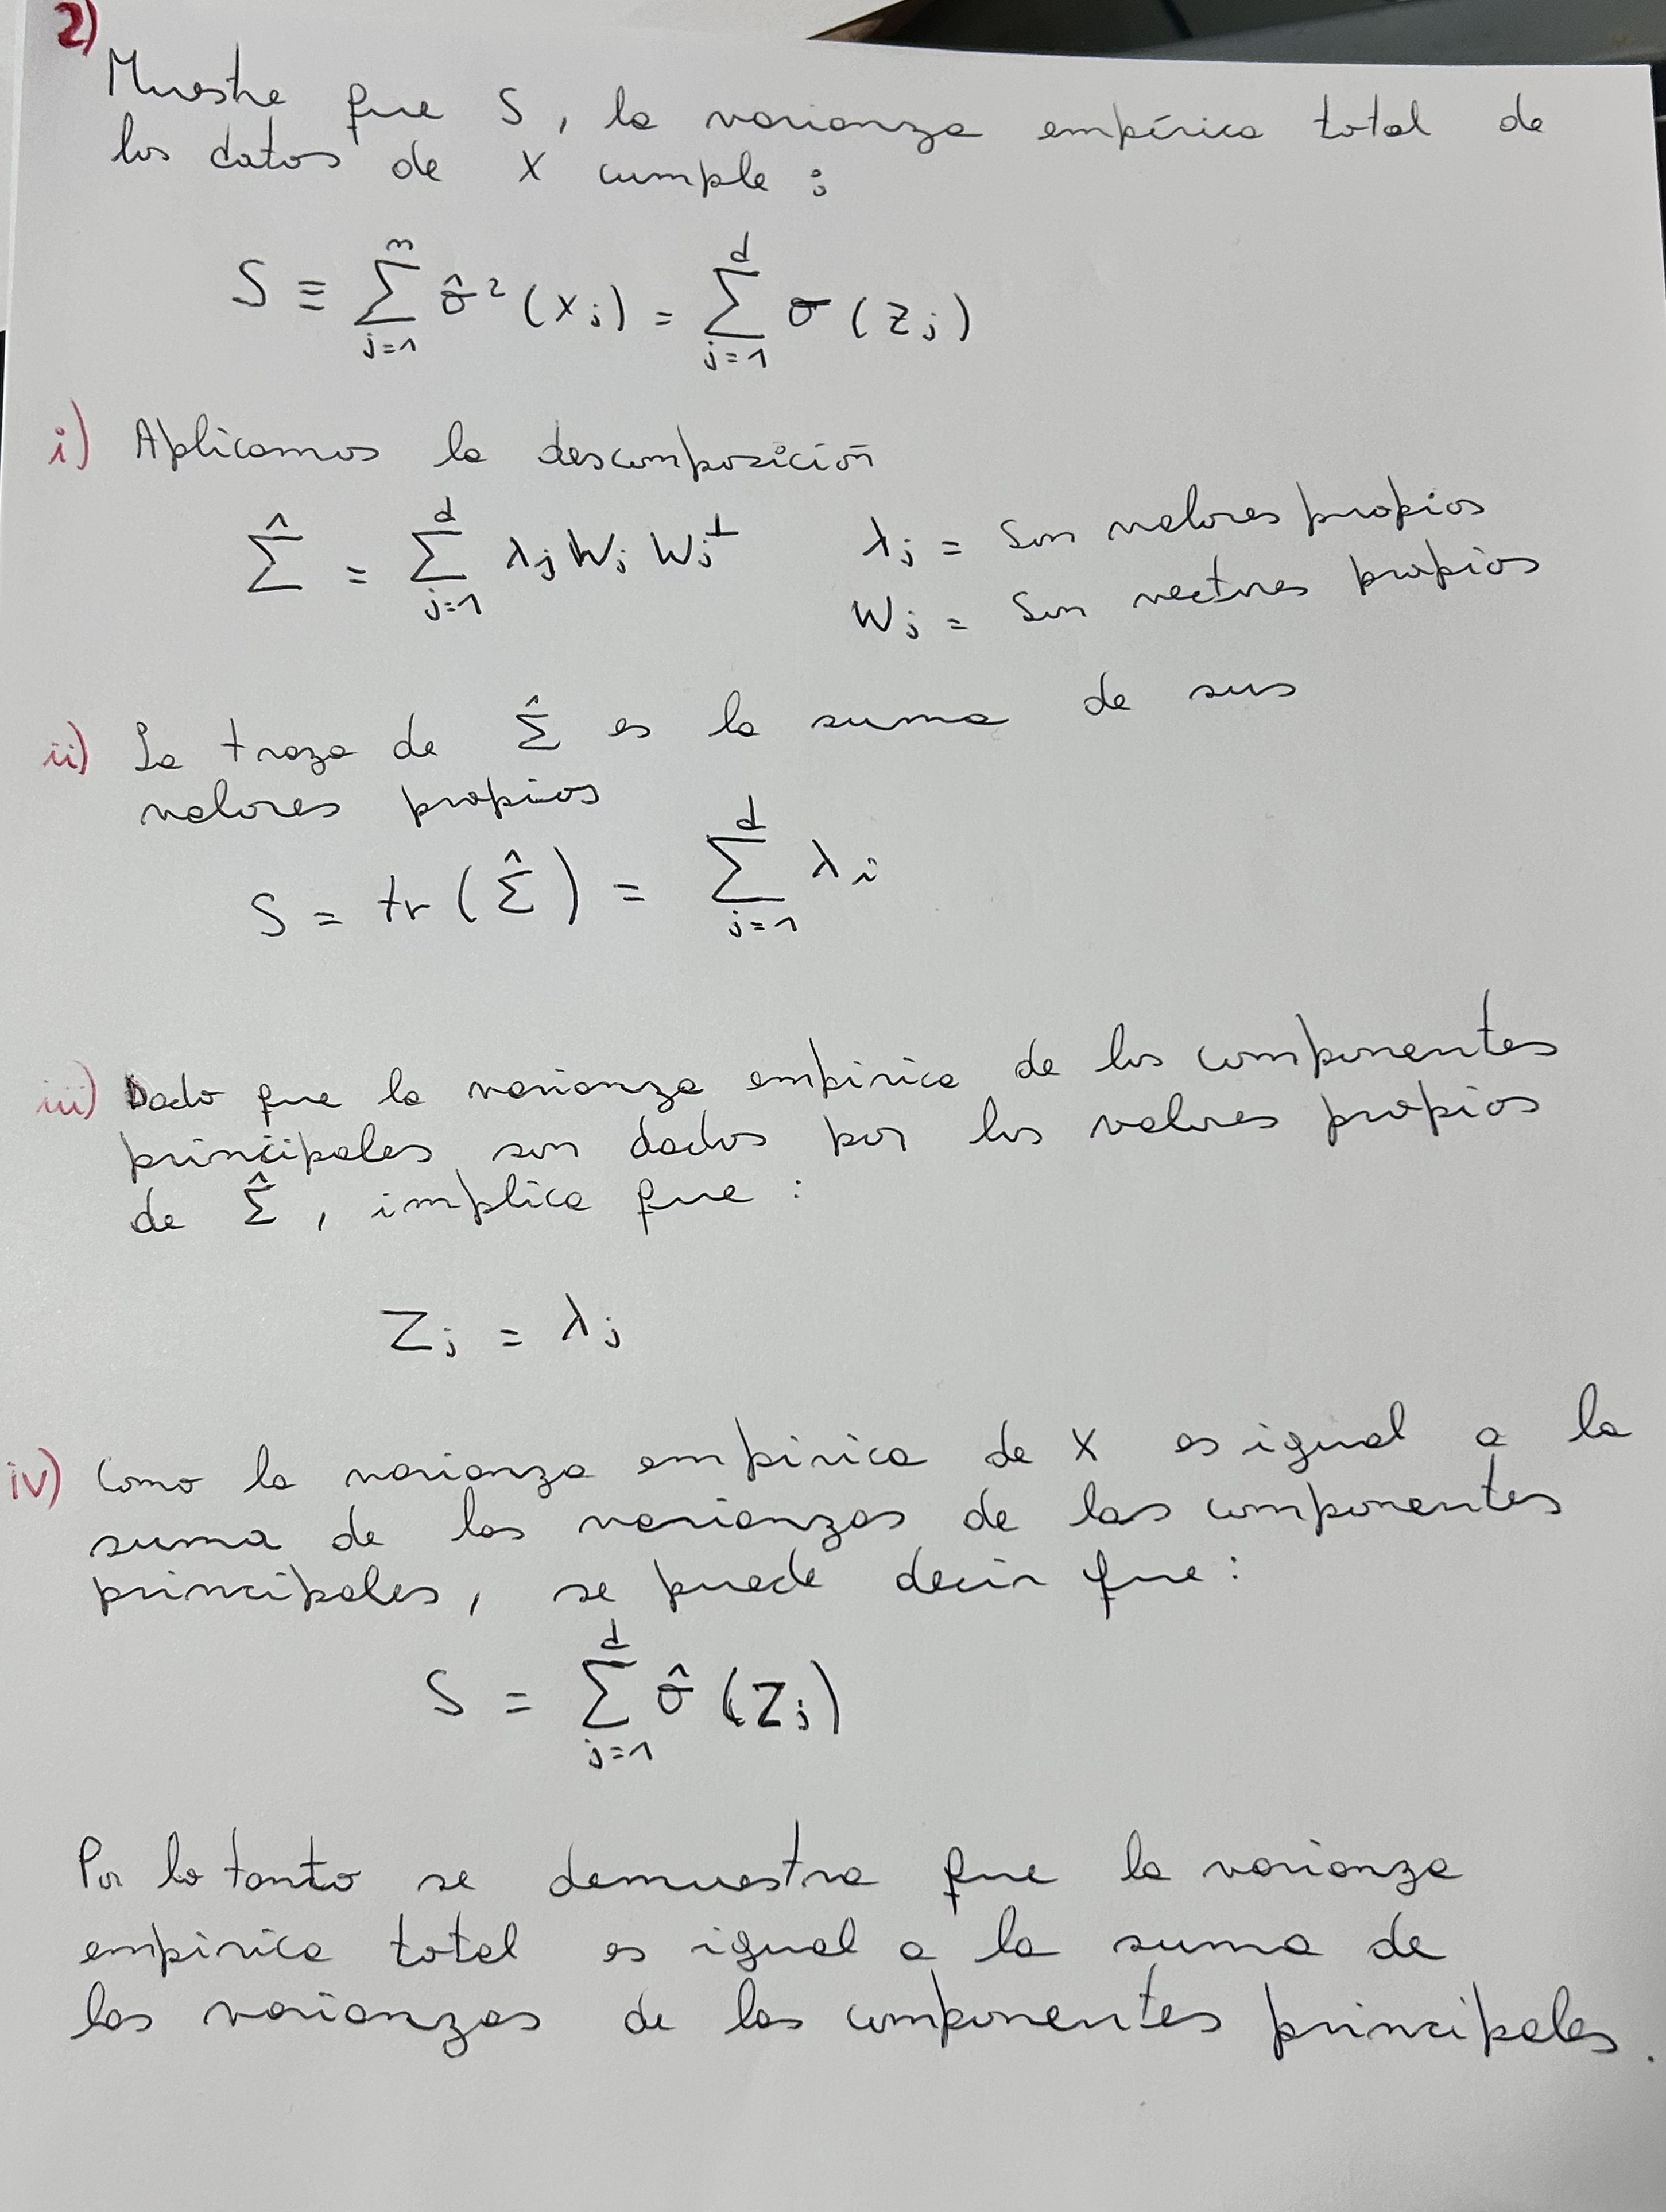 2)
Muestre que S, la varianza empírica total de
los datos de X cumple :
S ≡ ∑_{j=1}^{n} σ̂² (x_j) = ∑_{j=1}^{d} σ (z_j)
i) Aplicamos la descomposición
Σ̂ = ∑_{j=1}^{d} λ_j W_j W_j^t    λ_j = Son valores propios
W_j = Son vectores propios
ii) La traza de Σ̂ es la suma de sus
valores propios
S = tr (Σ̂) = ∑_{j=1}^{d} λ_i
iii) Dado que la varianza empirica de los componentes
principales son dados por los valores propios
de Σ̂, implica que :
Z_j = λ_j
iv) Como la varianza empirica de X es igual a la
suma de las varianzas de las componentes
principales, se puede decir que :
S = ∑_{j=1}^{d} σ̂ (Z_j)
Por lo tanto se demuestra que la varianza
empirica total es igual a la suma de
las varianzas de las componentes principales.